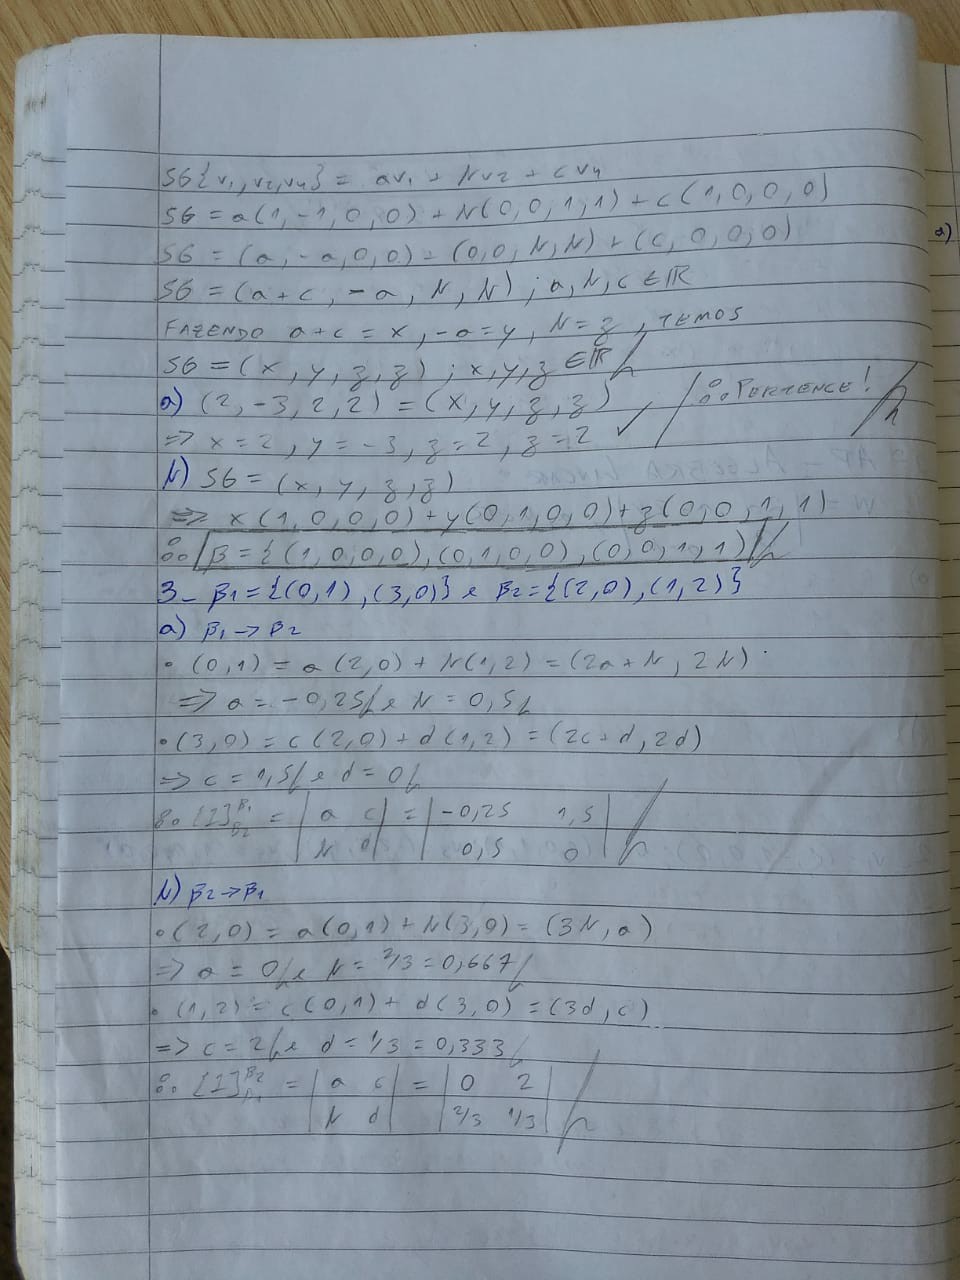 SG{v1,v2,v4} = av1 + bv2 + cv4
SG = a(1,-1,0,0) + b(0,0,1,1) + c(1,0,0,0)
SG = (a,-a,0,0) + (0,0,b,b) + (c,0,0,0)
SG = (a+c, -a, b, b) ; a,b,c ∈ ℝ
FAZENDO a+c = x, -a = y, b = z, TEMOS
SG = (x, y, z, z) ; x,y,z ∈ ℝ //
a) (2,-3,2,2) = (x, y, z, z)
⇒ x = 2, y = -3, z = 2, z = 2 ✓ / ∴ PERTENCE! //
b) SG = (x, y, z, z)
⇒ x(1,0,0,0) + y(0,1,0,0) + z(0,0,1,1)
∴ β = {(1,0,0,0), (0,1,0,0), (0,0,1,1)} //
3- β1 = {(0,1), (3,0)} e β2 = {(2,0), (1,2)}
a) β1 → β2
• (0,1) = a(2,0) + b(1,2) = (2a+b, 2b)
⇒ a = -0,25// e b = 0,5//
• (3,0) = c(2,0) + d(1,2) = (2c+d, 2d)
⇒ c = 1,5// e d = 0//
∴ [I]^β1_β2 = | a c | = | -0,25 1,5 | //
| b d | | 0,5 0 |
b) β2 → β1
• (2,0) = a(0,1) + b(3,0) = (3b, a)
⇒ a = 0// e b = 2/3 = 0,667//
• (1,2) = c(0,1) + d(3,0) = (3d, c)
⇒ c = 2// e d = 1/3 = 0,333//
∴ [I]^β2_β1 = | a c | = | 0 2 | //
| b d | | 2/3 1/3 |
a)